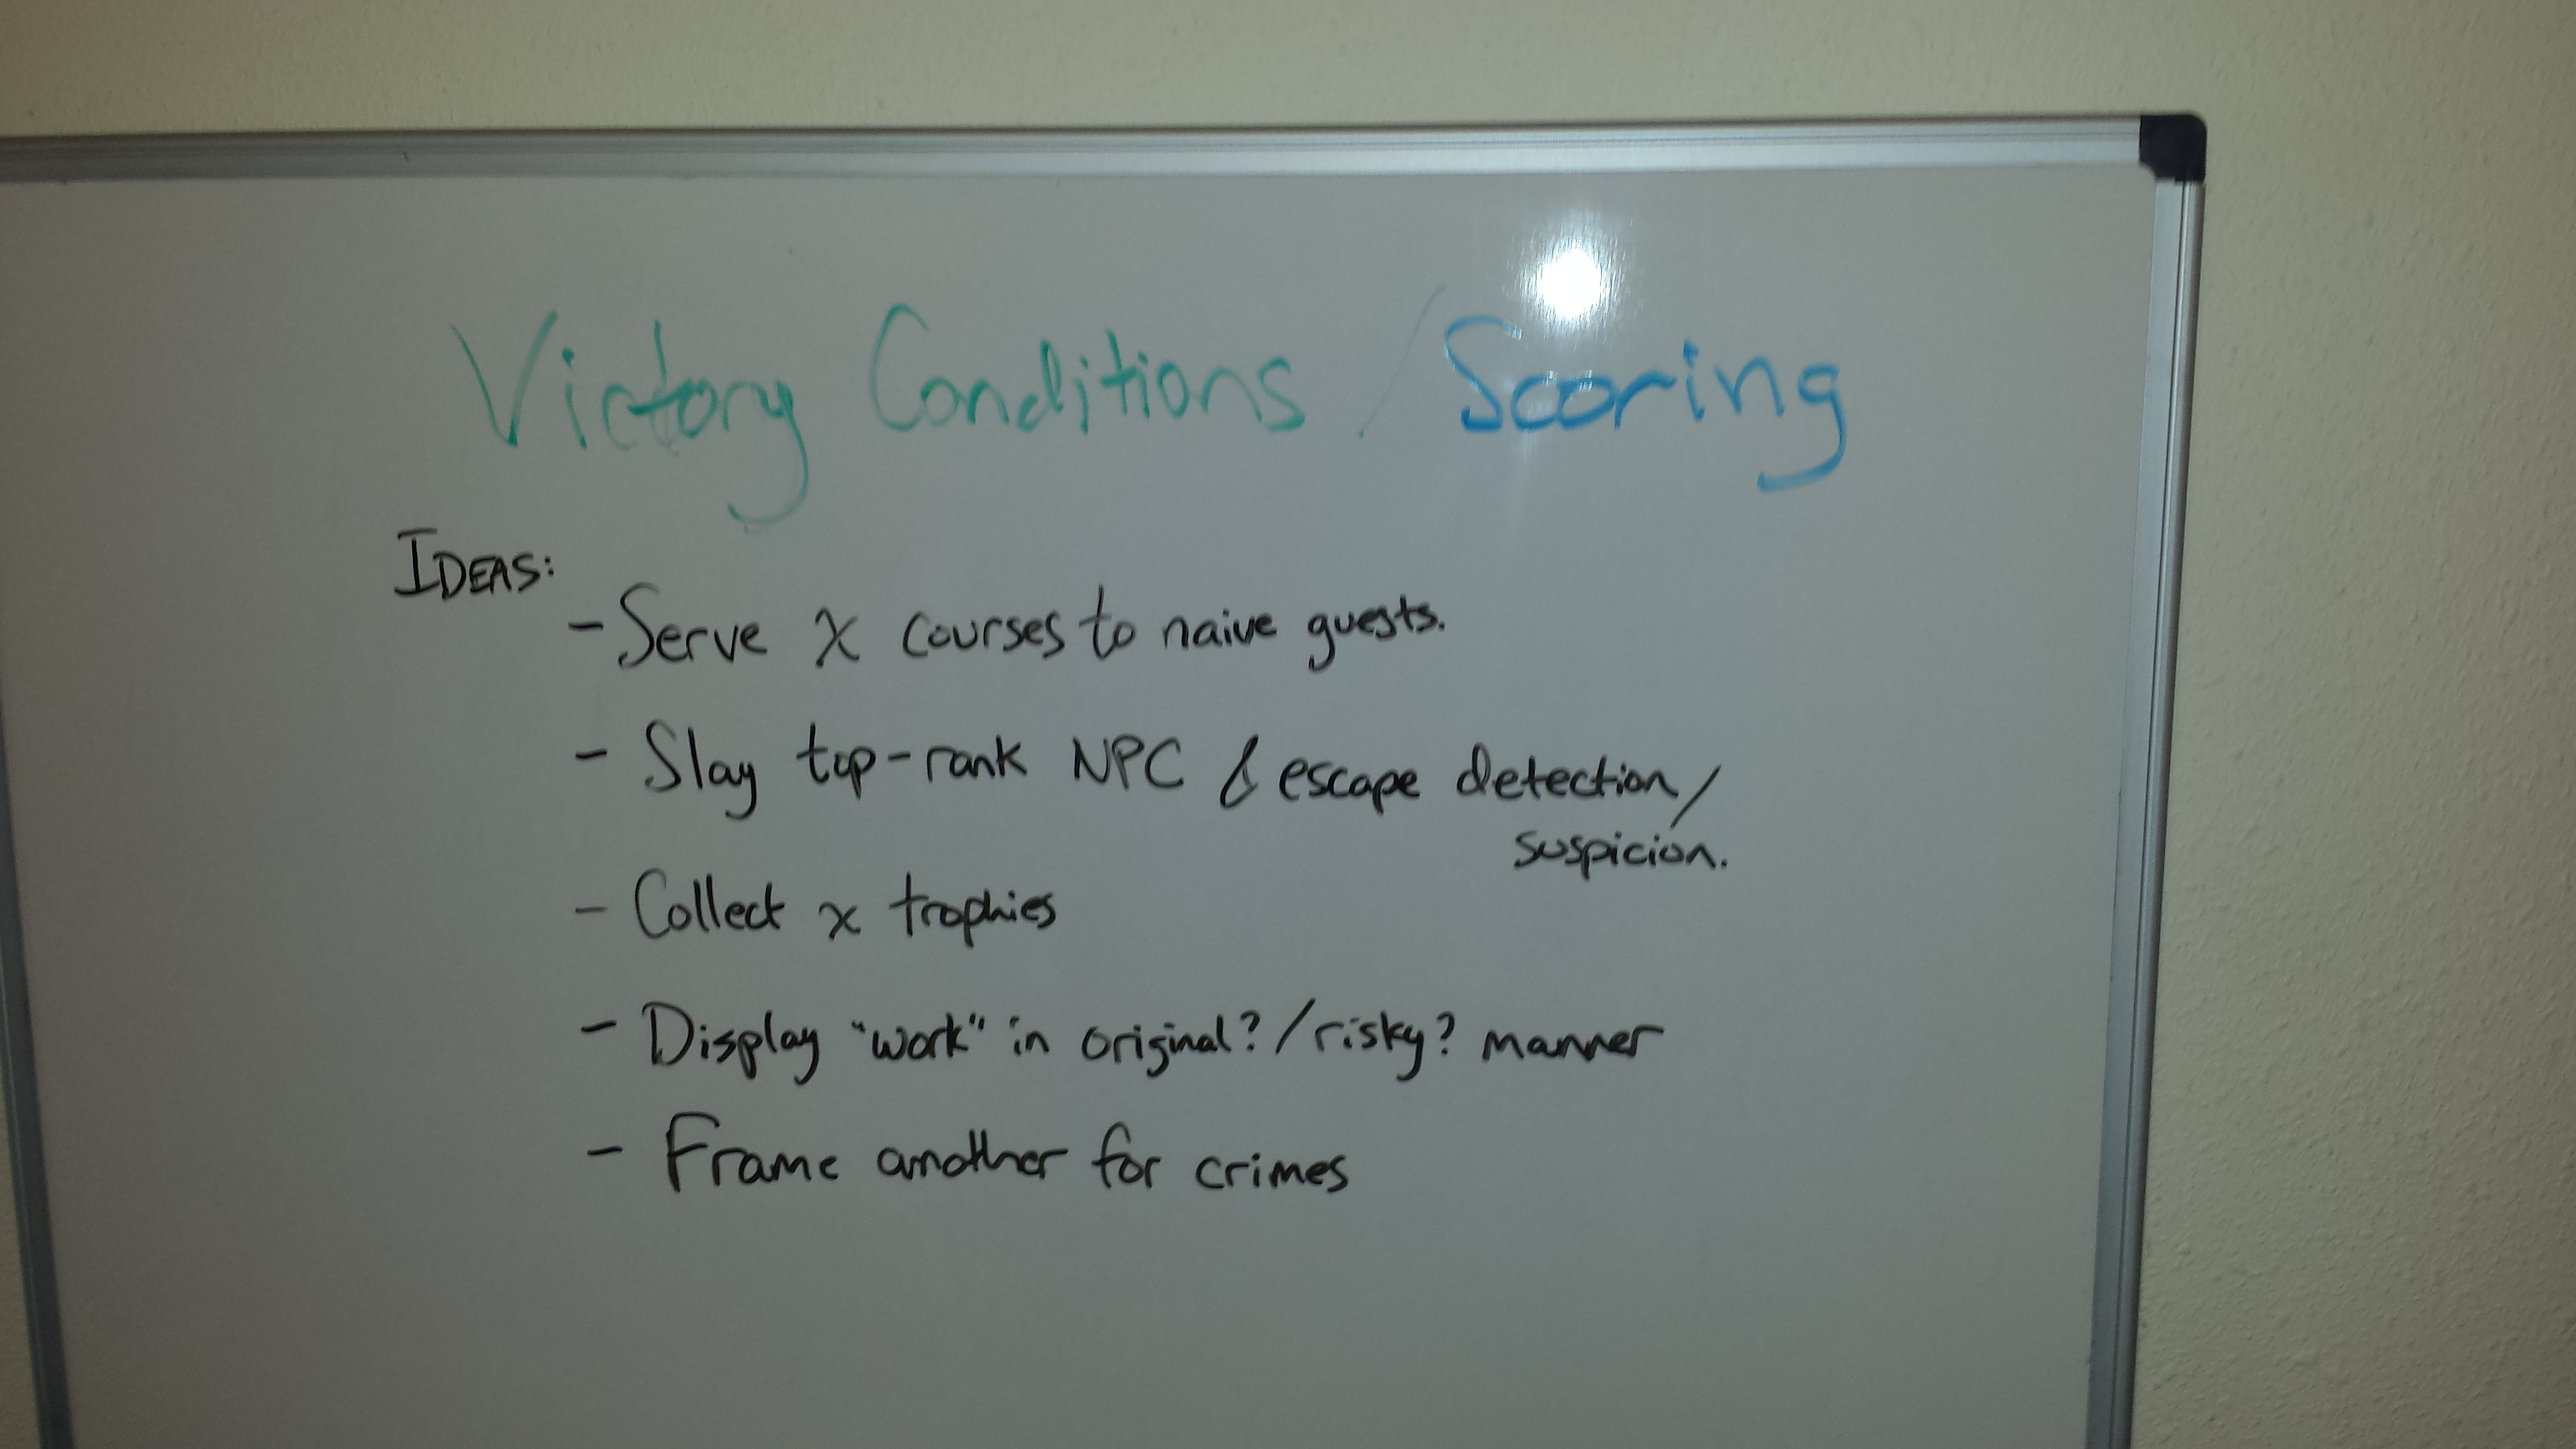 Victory Conditions / Scoring
IDEAS:
- Serve x courses to naive guests.
- Slay top-rank NPC & escape detection/
suspicion.
- Collect x trophies
- Display "work" in original?/risky? manner
- Frame another for crimes